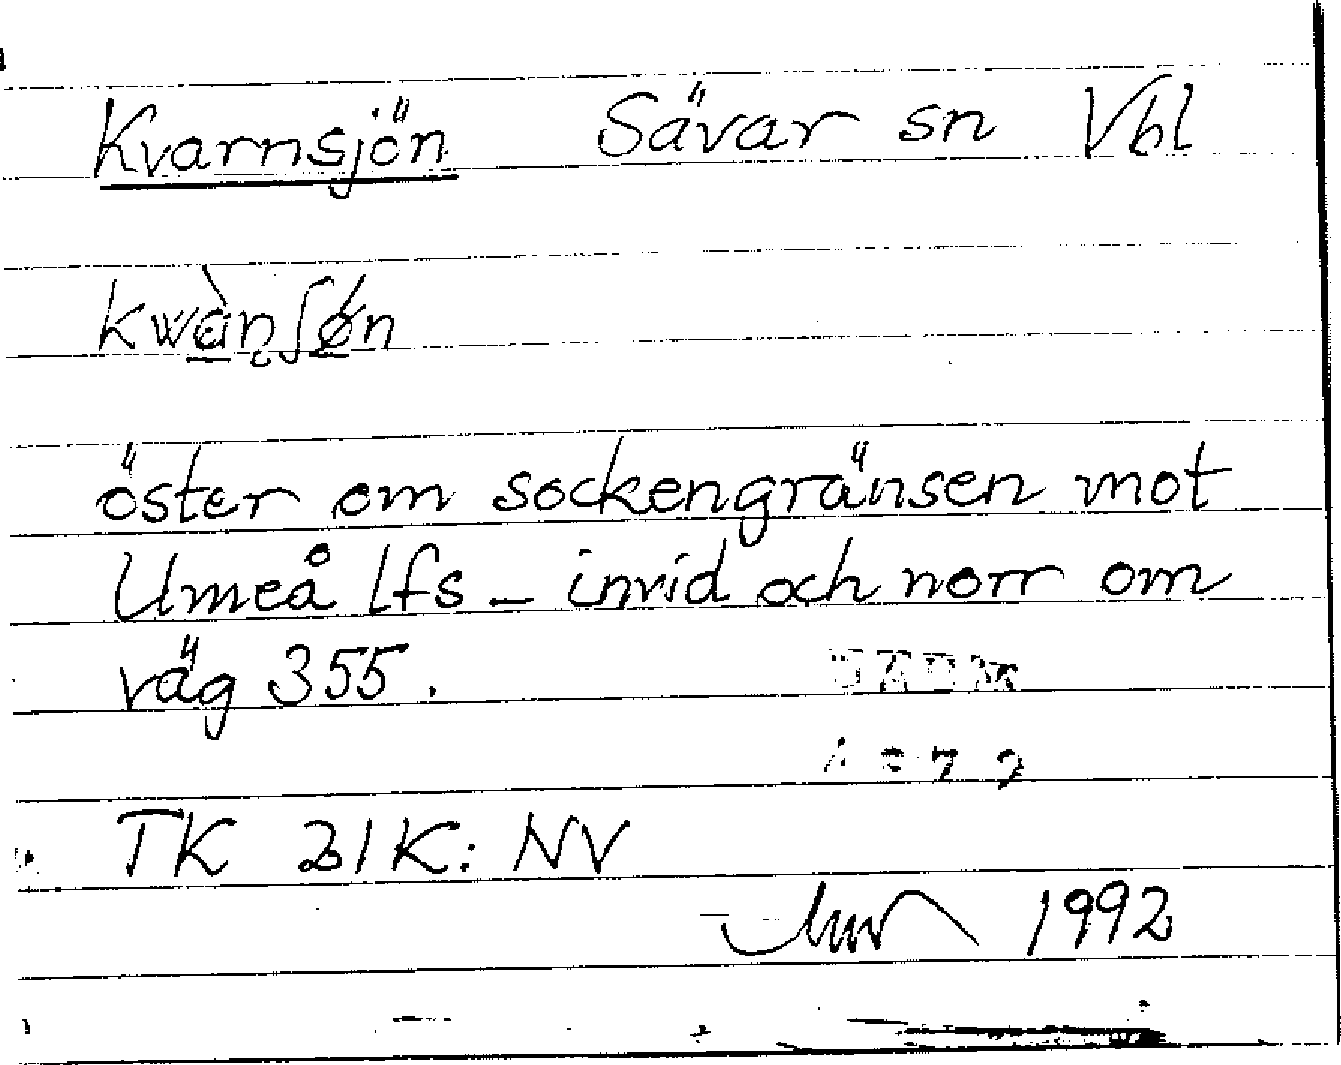 Kvarnsjön Sävar sn Vbl
kwà̲ṇʃǿ̲n
öster om sockengränsen mot
Umeå lfs - invid och norr om
väg 355.
TK 21K: NV
1992